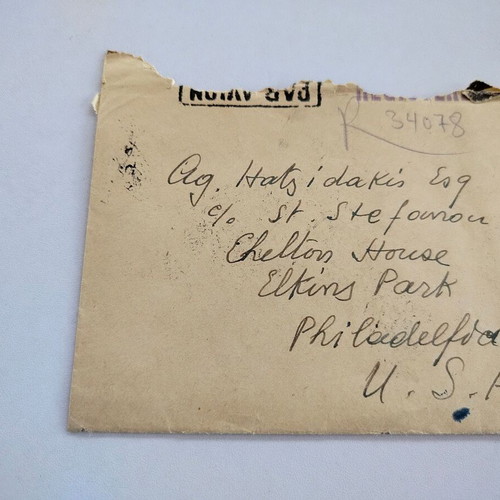 PAR AVION
R 34078
Ag. Hatzidakis Esq
c/o St. Stefanou
Chelton House
Elkins Park
Philadelfia
U. S. A